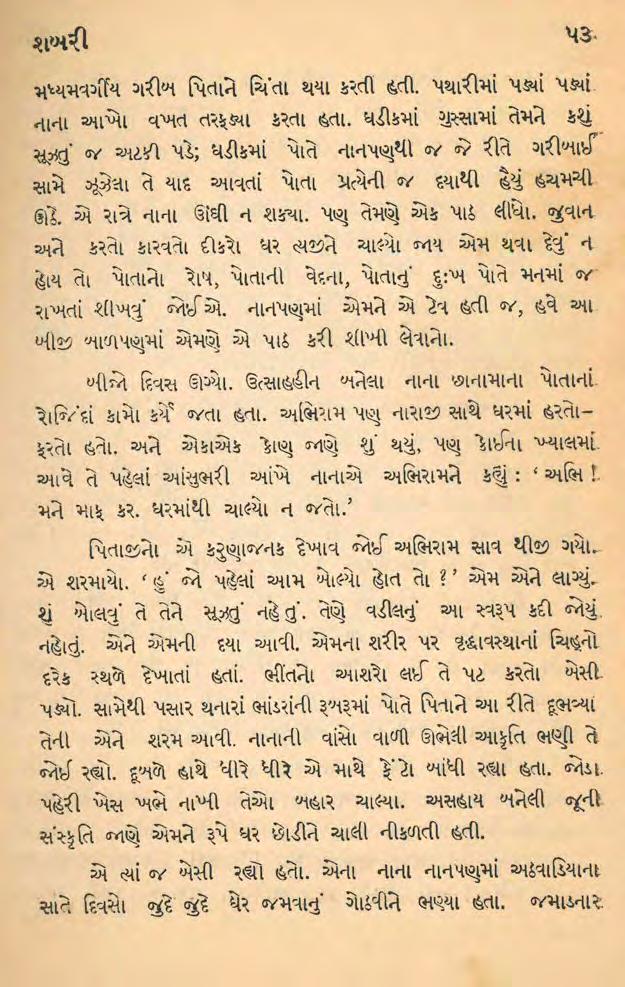 શબરી ૫૩
મધ્યમવર્ગીય ગરીબ પિતાને ચિંતા થયા કરતી હતી. પથારીમાં પડ્યાં પડ્યાં
નાના આખો વખત તરફડ્યા કરતા હતા. ઘડીકમાં ગુસ્સામાં તેમને કશું
સૂઝતું જ અટકી પડે; ઘડીકમાં પોતે નાનપણથી જ જે રીતે ગરીબાઈ
સામે ઝૂઝેલા તે યાદ આવતાં પોતા પ્રત્યેની જ દયાથી હૈયું હચમચી
ઊઠે. એ રાત્રે નાના ઊંઘી ન શક્યા. પણ તેમણે એક પાઠ લીધો. જુવાન
અને કરતો કારવતો દીકરો ઘર ત્યજીને ચાલ્યો જાય એમ થવા દેવું ન
હોય તો પોતાનો રોષ, પોતાની વેદના, પોતાનું દુઃખ પોતે મનમાં જ
રાખતાં શીખવું જોઈએ. નાનપણમાં એમને એ ટેવ હતી જ, હવે આ
બીજી બાળપણમાં એમણે એ પાઠ ફરી શીખી લેવાનો.
બીજો દિવસ ઊગ્યો. ઉત્સાહહીન બનેલા નાના છાનામાના પોતાનાં
રોજિંદાં કામો કર્યે જતા હતા. અભિરામ પણ નારાજી સાથે ઘરમાં હરતો–
ફરતો હતો. અને એકાએક કોણ જાણે શું થયું, પણ કોઈના ખ્યાલમાં
આવે તે પહેલાં આંસુભરી આંખે નાનાએ અભિરામને કહ્યું : ‘ અભિ !
મને માફ કર. ઘરમાંથી ચાલ્યો ન જતો.’
પિતાજીનો એ કરુણાજનક દેખાવ જોઈ અભિરામ સાવ થીજી ગયો.
એ શરમાયો. ‘ હું જો પહેલાં આમ બોલ્યો હોત તો ? ’ એમ એને લાગ્યું.
શું બોલવું તે તેને સૂઝતું નહોતું. તેણે વડીલનું આ સ્વરૂપ કદી જોયું
નહોતું. એને એમની દયા આવી. એમના શરીર પર વૃદ્ધાવસ્થાનાં ચિહ્નો
દરેક સ્થળે દેખાતાં હતાં. ભીંતનો આશરો લઈ તે પટ કરતો બેસી
પડ્યો. સામેથી પસાર થનારાં ભાંડરાંની રૂબરૂમાં પોતે પિતાને આ રીતે દૂભવ્યા
તેની એને શરમ આવી. નાનાની વાંસો વાળી ઊભેલી આકૃતિ ભણી તે
જોઈ રહ્યો. દૂબળે હાથે ધીરે ધીરે એ માથે ફેંટો બાંધી રહ્યા હતા. જોડા
પહેરી ખેસ ખભે નાખી તેઓ બહાર ચાલ્યા. અસહાય બનેલી જૂની
સંસ્કૃતિ જાણે એમને રૂપે ઘર છોડીને ચાલી નીકળતી હતી.
એ ત્યાં જ બેસી રહ્યો હતો. એના નાના નાનપણમાં અઠવાડિયાના
સાતે દિવસો જુદે જુદે ઘેર જમવાનું ગોઠવીને ભણ્યા હતા. જમાડનાર